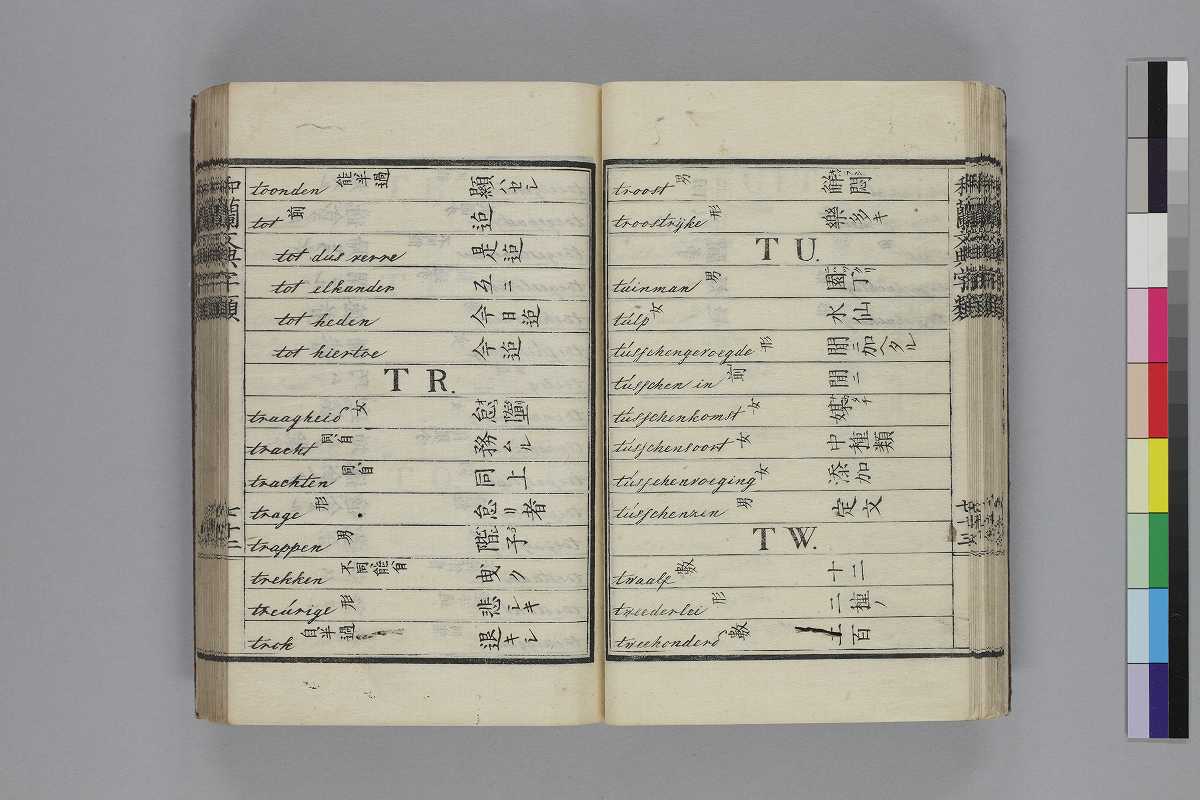 toonden 能半過 顯ハセシ
tot 前 迨
tot dús verre 是迨
tot elkander 互ニ
tot heden 今日迨
tot hiertoe 今迨
T R.
traagheid 女 怠墮
tracht 同自 務ムル
trachten 同自 同上
trage 形 怠リ者
trappen 男 階子
trekken 不同能自 曳ク
treúrige 形 悲シキ
trok 自半過 退キシ
troost 男 解悶
troostrijke 形 樂多キ
T U.
túinman 男 園丁
túlp 女 水仙
tússchengevoegde 形 間ニ加ヘタル
tússchen in 前 間ニ
tússchenkomst 女
tússchensoort 女 中種類
tússchenvoeging 女 添加
tússchenzin 男 定文
T W.
twaalf 數 十二
tweederlei 形 二種ノ
tweehonderd 數 二百
和蘭文典字類